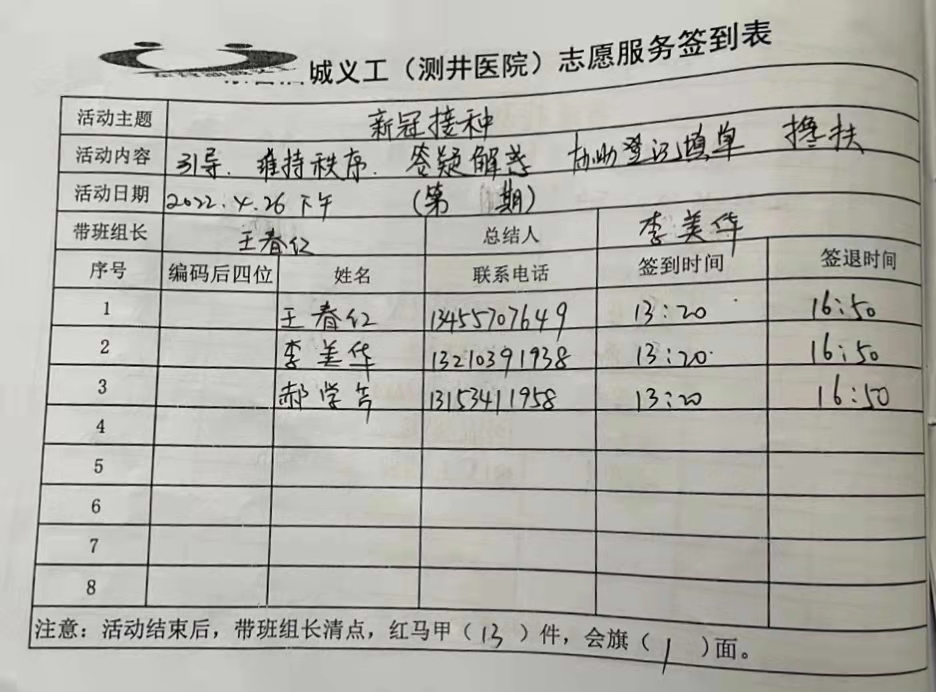 城义工（测井医院）志愿服务签到表
活动主题 新冠接种
活动内容 引导. 维持秩序. 答疑解惑 协助登记填单 搀扶
活动日期 2022.4.26下午 (第 期)
带班组长 王春红 总结人 李美华
序号 编码后四位 姓名 联系电话 签到时间 签退时间
1 王春红 13455707649 13:20 16:50
2 李美华 13210391938 13:20 16:50
3 郝学 13153411958 13:20 16:50
4
5
6
7
8
注意：活动结束后，带班组长清点，红马甲（13）件，会旗（1）面。